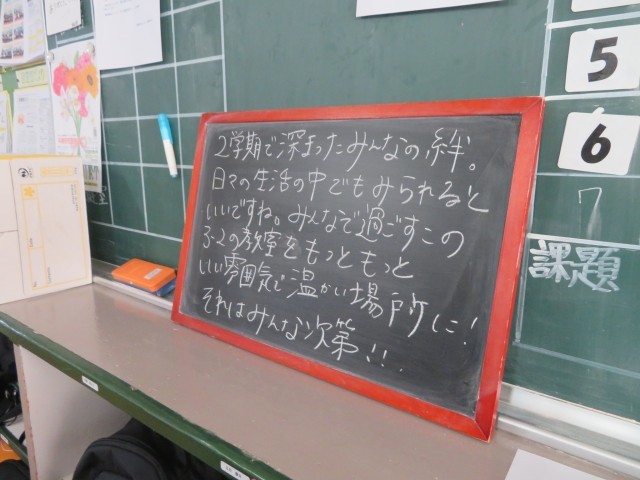 2学期で深まったみんなの絆。
日々の生活の中でもみられると
いいですね。みんなで過ごすこの
3-2の教室をもっともっと
いい雰囲気で温かい場所に!
それはみんな次第!!
5
6
7
課題